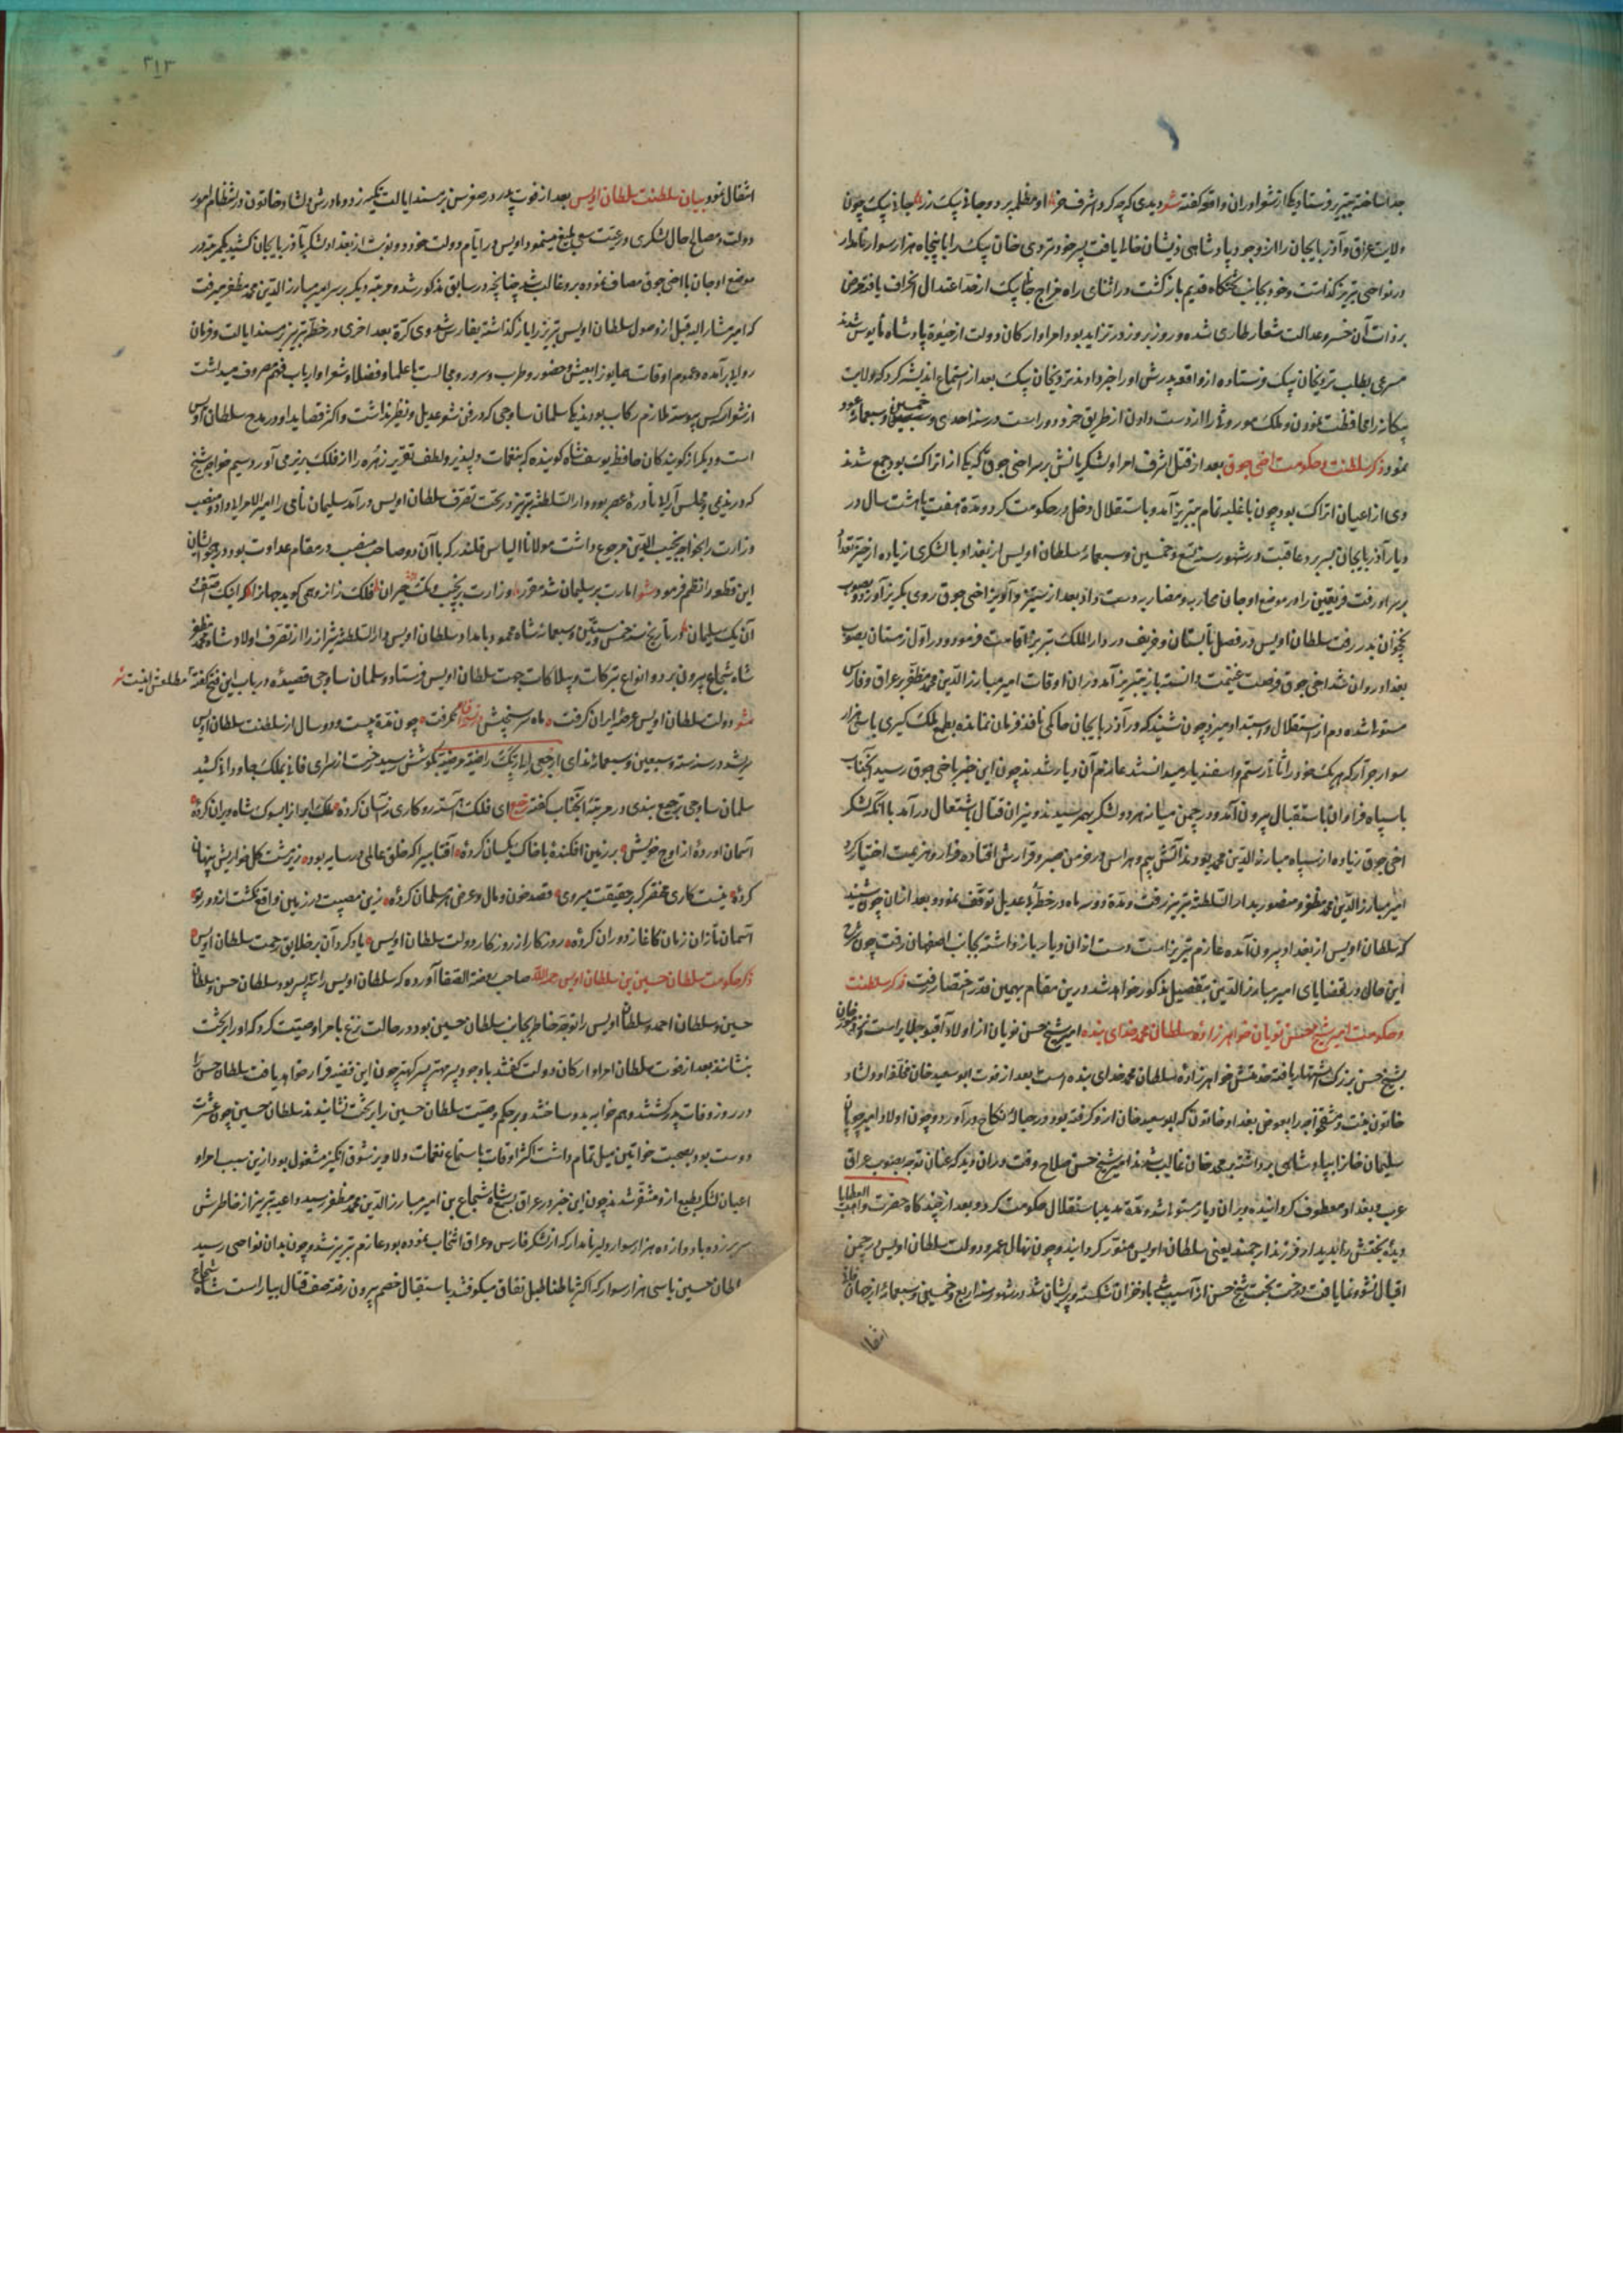 جدا ساخته بتبریز فرستاد و یکی از شعرا در آن واقعه گفته شعر دیدی که چه کرد اشرف خر او مظلمه برد و جانی بیک زر جانی بیک چون
ولایت عراق و آذربایجان را از وجود پادشاهی ذیشان خالی یافت پسر خود بردی خان بیک را با پنجاه هزار سوار نامدار
در نواحی تبریز گذاشت و خود بجانب تختگاه قدیم بازگشت در اثنای راه مزاج جانی بیک از حد اعتدال انحراف یافته مرض
بر ذات آن خسرو عدالت شعار طاری شده روز بروز در تزاید بود امرا و ارکان دولت از حیوة پادشاه مأیوس شدند
مسرعی بطلب بردیخان بیک فرستاده از واقعه پدرش او را خبر دادند بردیخان بیک بعد از استماع اندیشه کرد که ولایت
بیگانه را محافظت نمودن و ملک موروثی را از دست دادن از طریق خرد دور است در سنه احدی و خمسین و سبعمائه عود
نمود ذکر سلطنت و حکومت اخی جوق بعد از قتل اشرف امرا و لشکریانش بر سر اخی جوق که یکی از اتراک بود جمع شدند
وی از اعیان اتراک بود چون با غلبه تمام بتبریز آمد و باستقلال دخل در حکومت کرد و مدة هفت یا هشت سال در
دیار آذربایجان بسر برد عاقبت در شهور سنه تسع و خمسین و سبعمائه سلطان اویس از بغداد با لشکری زیاده از حیز تعداد
بر سر او رفت فریقین را در موضع اوجان محاربه و مضاربه دست داد بعد از ستیز و آویز اخی جوق روی بگریز آورد و بصوب
نخجوان بدر رفت سلطان اویس در فصل تابستان و خریف در دار الملک تبریز اقامت فرمود و در اول زمستان بصوب
بغداد روان شد اخی جوق فرصت غنیمت دانسته باز بتبریز آمد در آن اوقات امیر مبارز الدین محمد مظفر بر عراق و فارس
مستولی شده دم از استقلال و استبداد میزد چون شنید که در آذربایجان حاکمی نافذ فرمان نمانده بطمع ملک گیری با سی هزار
سوار جرار که هر یک خود را ثانی رستم و اسفندیار میدانستند عازم آن دیار شدند چون این خبر باخی جوق رسید آنجناب
با سپاه فراوان باستقبال بیرون آمد و در چمن میانه هر دو لشکر بهم رسیدند و نیران قتال باشتعال درآمد با آنکه لشکر
اخی جوق زیاده از سپاه مبارز الدین محمد بودند آتش بیم و هراس در خرمن صبر و قرارش افتاده فرار و هزیمت اختیار کرد
امیر مبارز الدین محمد مظفر و منصور بدار السلطنه تبریز رفت و مدة دو سه ماه در خطۀ بی عدیل توقف نمود و بعد از آن چون شنید
که سلطان اویس از بغداد بیرون آمده عازم تبریز است دست از آن دیار باز داشته بجانب اصفهان رفت چون شرح
این حال در قضایای امیر مبارز الدین بتفصیل مذکور خواهد شد درین مقام بهمین قدر اختصار رفت ذکر سلطنت
و حکومت امیر شیخ حسن نویان خواهر زادۀ سلطان محمد خدای بنده امیر شیخ حسن نویان از اولاد آقبوغا جلایر است
بشیخ حسن بزرگ اشتهار یافته خدمتش خواهر زادۀ سلطان محمد خدای بنده است بعد از فوت ابو سعید خان مخالفا و دلشاد
خاتون بنت دمشق خواجه را بعوض بغداد خاتون که ابو سعید خان ازو گرفته بود در حبالۀ نکاح درآورد و چون اولاد امیر چوپان
سلیمان خان را بپادشاهی برداشته بر محمد خان غالب شدند امیر شیخ حسن صلاح وقت در آن دید که عنان توجه بصوب عراق
عرب و بغداد معطوف گردانیده بر آن دیار مستولی شد و مدة مدید باستقلال حکومت کرد و بعد از چند گاه حضرت واهب العطایا
دیدۀ بختش را بدیدار فرزند ارجمند یعنی سلطان اویس منور گردانید و چون نهال عمر و دولت سلطان اویس در چمن
اقبال نشو و نما یافت درخت بخت شیخ حسن از آسیب باد خزان شکسته و پریشان شد در شهور سنه اربع و خمسین و سبعمائه از جهان فانی
انتقال
۲۱۳
انتقال نمود بیان سلطنت سلطان اویس بعد از فوت پدر در صغر سن بر مسند ایالت تکیه زد و مادرش دلشاد خاتون در انتظام امور
دولت و مصالح حال لشکری و رعیت سعی بلیغ مینمود اویس در ایام دولت خود دو نوبت از بغداد لشکر بآذربایجان کشید یکمرتبه در
موضع اوجان با اخی جوق مصاف نموده برو غالب شد چنانچه در سابق مذکور شده مرتبه دیگر بر سر امیر مبارز الدین محمد مظفر میرفت
که امیر مشار الیه قبل از وصول سلطان اویس تبریز را باز گذاشته بفارس شد وی کرة بعد اخری در خطۀ تبریز بر مسند ایالت و فرمان
روایی برآمده و عموم اوقات همایون را بعیش و حضور و طرب و سرور و مجالست با علما و فضلا و شعرا و ارباب فهم مصروف میداشت
از شعرا دو کس پیوسته ملازم رکاب بودند یکی سلمان ساوجی که در فن شعر عدیل و نظیر نداشت و اکثر قصاید او در مدح سلطان اویس
است و دیگر از گویندگان حافظ یوسف شاه گوینده که بنغمات دلپذیر و لطف تقریر زهره را از فلک بزیر می آورد سیم خواجه شیخ
که در ندیمی و مجلس آرایی نادرۀ عصر بود و دار السلطنه تبریز در تحت تصرف سلطان اویس درآمد سلیمان نامی را امیر الامرایی داد و منصب
وزارت را بخواجه نجیب الدین مرجوع داشت مولانا الیاس قلندر که با آن دو صاحب منصب در مقام عداوت بود در هجو ایشان
این قطعه را نظم فرمود شعر امارت بر سلیمان شد مقرر وزارت بر نجیب ملک حیران فلک زانرو همی گوید جهان را که اینک آصف
آن یک سلیمان در تاریخ سنه خمس و ستین و سبعمائه شاه محمود بامداد سلطان اویس دار السلطنه شیراز را از تصرف اولاد شاه محمد مظفر
شاه شجاع بیرون برد و انواع تبرکات و بیلاکات جهت سلطان اویس فرستاد و سلمان ساوجی قصیده در باب این فتح گفته مطلعش اینست شعر
شعر دولت سلطان اویس عرصۀ ایران گرفت ماه سر سنجقش سرحد کیوان گرفت چون مدة بیست و دو سال از سلطنت سلطان اویس
بسر شد در سنه ستة و سبعین و سبعمائه ندای ارجعی الی ربک راضیة مرضیة بگوش هوشش رسید رخت از سرای فانی بملک جاودانی کشید
سلمان ساوجی ترجیع بندی در مرثیۀ آنجناب گفته ترجیع ای فلک آهسته رو کاری نه آسان کردۀ ملک ایران را بمرگ شاه ویران کردۀ
آسمانی را فرود آوردۀ از اوج خویش بر زمین افکندۀ با خاک یکسان کردۀ آفتابی را که خلق عالمی در سایه بود زیر مشت گل بخواریش پنهان
کردۀ نیست کاری مختصر گر با حقیقت میروی قصد خون و مال و عرض هر مسلمان کردۀ زین مصیبت در زمین واقع نگشت از دور تو
آسمان تا زان زمان کاغاز دوران کردۀ روزگار از روزگار دولت سلطان اویس یاد کرد آن بر خلایق رحمت سلطان اویس
ذکر حکومت سلطان حسین بن سلطان اویس رحمه الله صاحب روضة الصفا آورده که سلطان اویس را سه پسر بود سلطان حسن و سلطان
حسین و سلطان احمد و سلطان اویس را توجه خاطر بجانب سلطان حسین بود و در حالت نزع با امرا وصیت کرد که او را بتخت
بنشانند بعد از فوت سلطان امرا و ارکان دولت گفتند با وجود پسر مهتر پسر کهتر چون این قضیه قرار خواهد یافت سلطان حسن را
در روز وفات پدر کشتند و هم خوابۀ پدر ساختند و بر حکم وصیت سلطان حسین را بر تخت نشانیدند سلطان حسین چون عشرت
دوست بود و بصحبت خواتین میل تمام داشت اکثر اوقات باستماع نغمات دلاویز شوق انگیز مشغول بود ازین سبب امرا و
اعیان لشکر بطبع ازو متنفر شدند چون این خبر در عراق بشاه شجاع بن امیر مبارز الدین محمد مظفر رسید داعیۀ تبریز از خاطرش
سر بر زده با دوازده هزار سوار دلیر نامدار که از لشکر فارس و عراق انتخاب نموده بود عازم تبریز شد و چون بدان نواحی رسید
سلطان حسین با سی هزار سوار که اکثر باطنا طبل نفاق میکوفتند باستقبال خصم بیرون رفته صف قتال بیاراست شاه شجاع